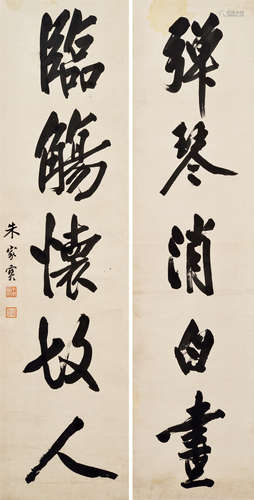 弹琴消白畫
臨觴懷故人
朱家寶